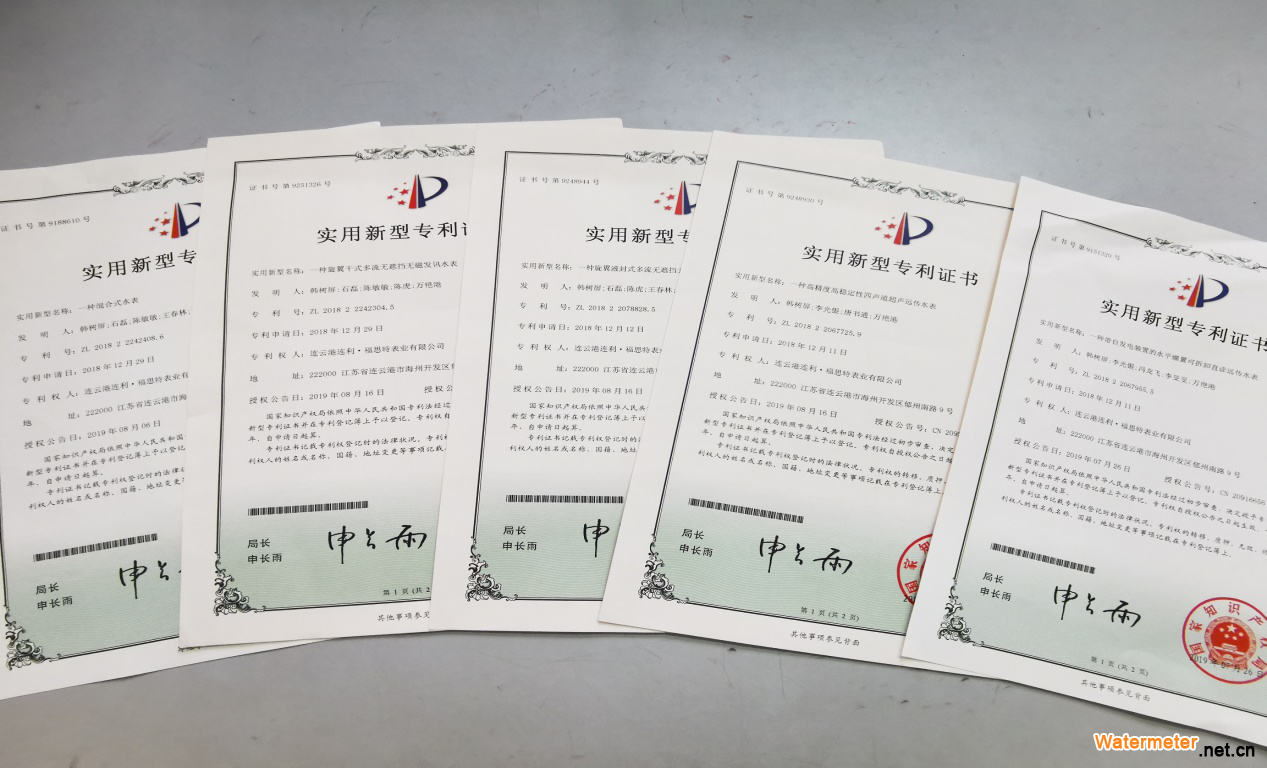 证书号第9188610号
实用新型专
实用新型名称：一种混合式水表
发 明 人：韩树屏;石磊;陈敏敏;陈虎;王春林;
专 利 号：ZL 2018 2 2242408.6
专利申请日：2018年12月29日
专 利 权 人：连云港连利·福思特表业有
地 址：222000 江苏省连云港市海
授权公告日：2019年08月06日
国家知识产权局依照中华人民共和国
新型专利证书并在专利登记簿上予以登记
年，自申请日起算。
专利证书记载专利权登记时的法律
利权人的姓名或名称、国籍、地址变更
局长
申长雨
申长雨
证书号第9251326号
实用新型专利证
实用新型名称：一种旋翼干式多流无遮挡无磁发讯水表
发 明 人：韩树屏;石磊;陈敏敏;陈虎;万艳港
专 利 号：ZL 2018 2 2242304.5
专利申请日：2018年12月29日
专 利 权 人：连云港连利·福思特表业有限公司
地 址：222000 江苏省连云港市海州开发区
授权公告日：2019年08月16日 授权公
国家知识产权局依照中华人民共和国专利法经过
新型专利证书并在专利登记簿上予以登记。专利权自
年，自申请日起算。
专利证书记载专利权登记时的法律状况。专利
利权人的姓名或名称、国籍、地址变更等事项记载
局长
申长雨
申长雨
第 1 页 (共 2
其他事项参见
证书号第9248944号
实用新型专
实用新型名称：一种旋翼液封式多流无遮挡
发 明 人：韩树屏;石磊;陈虎;王春林;
专 利 号：ZL 2018 2 2078828.5
专利申请日：2018年12月12日
专 利 权 人：连云港连利·福思特表
地 址：222000 江苏省连云港市海
授权公告日：2019年08月16日
国家知识产权局依照中华人民共和
新型专利证书并在专利登记簿上予以登
年，自申请日起算。
专利证书记载专利权登记时的
利权人的姓名或名称、国籍、地址变
局长
申长雨
申
证书号第9248930号
实用新型专利证书
实用新型名称：一种高精度高稳定性四声道超声远传水表
发 明 人：韩树屏;李光银;唐书通;万艳港
专 利 号：ZL 2018 2 2067725.9
专利申请日：2018年12月11日
专 利 权 人：连云港连利·福思特表业有限公司
地 址：222000 江苏省连云港市海州开发区郁州南路9号
授权公告日：2019年08月16日 授权公告号：CN 209
国家知识产权局依照中华人民共和国专利法经过初步审查，决定
新型专利证书并在专利登记簿上予以登记。专利权自授权公告之日
年，自申请日起算。
专利证书记载专利权登记时的法律状况。专利权的转移、质押
利权人的姓名或名称、国籍、地址变更等事项记载在专利登记簿上
局长
申长雨
申长雨
第 1 页 (共 2 页)
其他事项参见背面
证书号第9151320号
实用新型专利证书
实用新型名称：一种带自发电装置的水平螺翼可拆卸直读远传水表
发 明 人：韩树屏;李光银;冯龙飞;李旻旻;万艳港
专 利 号：ZL 2018 2 2067965.5
专利申请日：2018年12月11日
专 利 权 人：连云港连利·福思特表业有限公司
地 址：222000 江苏省连云港市海州开发区郁州南路9号
授权公告日：2019年07月26日 授权公告号：CN 20916656
国家知识产权局依照中华人民共和国专利法经过初步审查，决定授予专
新型专利证书并在专利登记簿上予以登记。专利权自授权公告之日起生效。
年，自申请日起算。
专利证书记载专利权登记时的法律状况。专利权的转移、质押、无效、
利权人的姓名或名称、国籍、地址变更等事项记载在专利登记簿上。
局长
申长雨
申长雨
国家知识产权局
2019年07月26日
第 1 页 (共 2 页)
其他事项参见背面
Watermeter.net.cn